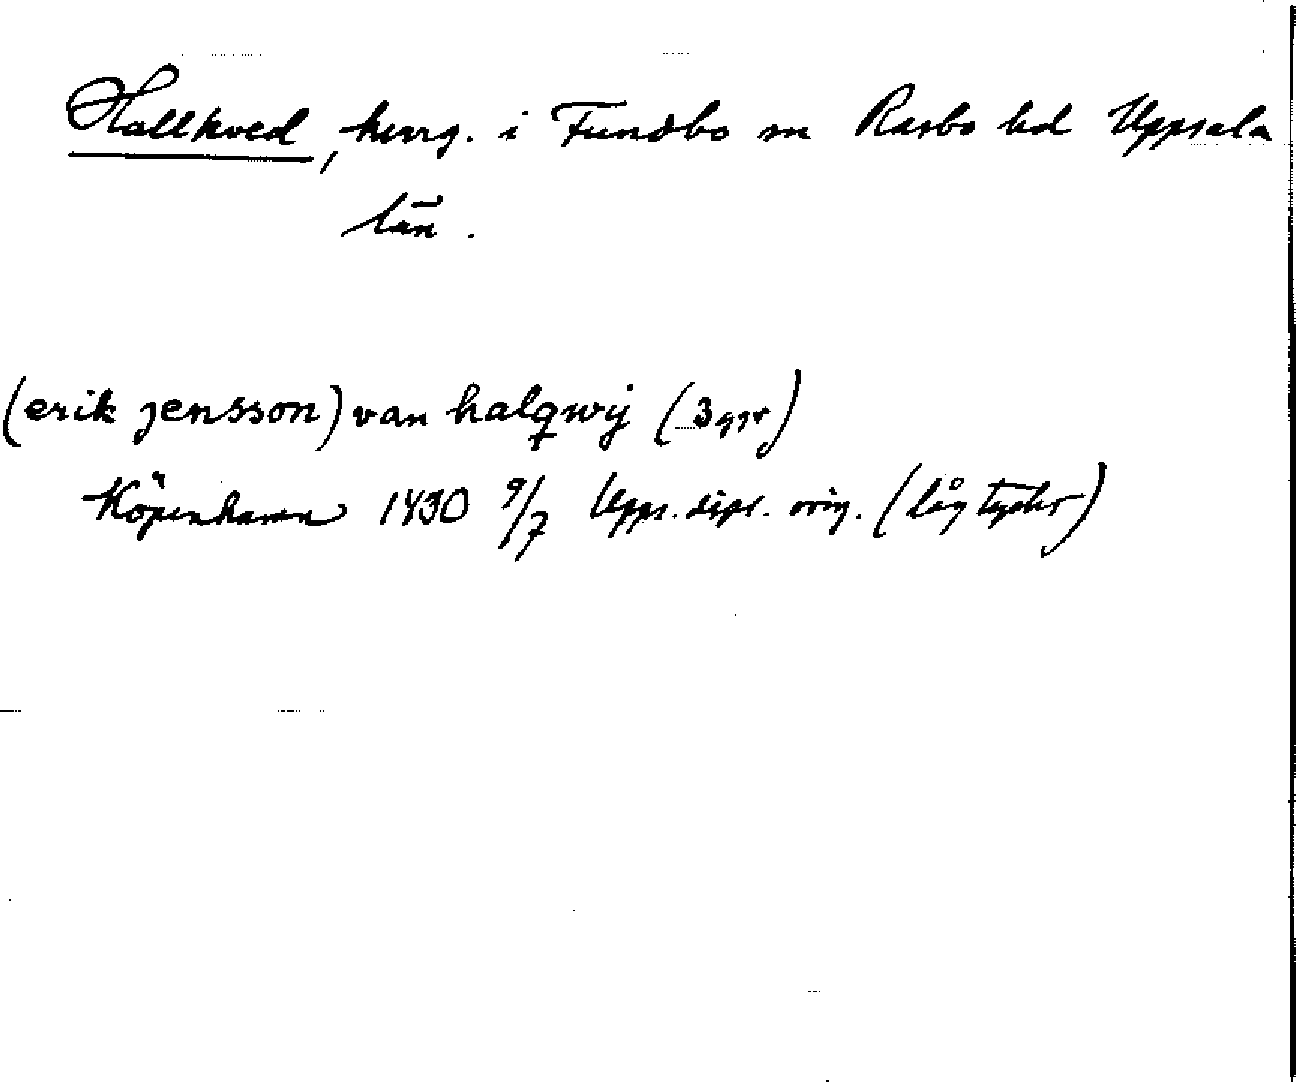 Hallkved, herrg. i Funbo sn Rasbo hd Uppsala
län.
(erik jensson) van halqwij (3 ggr)
Köpenhamn 1430 9/7 Upps. dipl. orig. (låg tyska)